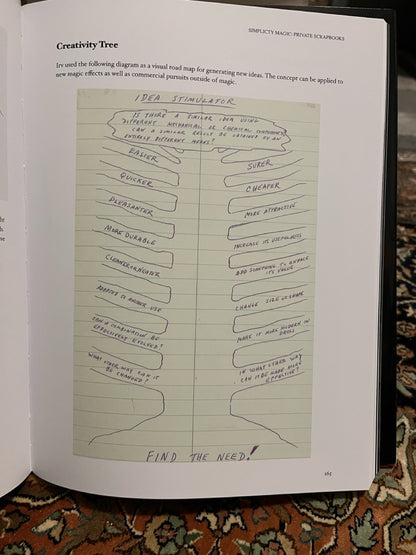 SIMPLICTY MAGIC: PRIVATE SCRAPBOOKS
Creativity Tree
Irv used the following diagram as a visual road map for generating new ideas. The concept can be applied to
new magic effects as well as commercial pursuits outside of magic.
IDEA STIMULATOR
IS THERE A SIMILAR IDEA USING
DIFFERENT MECHANICAL OR CHEMICAL COMPONENTS
CAN A SIMILAR RESULT BE OBTAINED BY AN
ENTIRELY DIFFERENT MEANS?
EASIER
QUICKER
PLEASANTER
MORE DURABLE
CLEANER OR NEATER
ADAPTED TO ANOTHER USE
CAN A COMBINATION BE
EFFECTIVELY EVOLVED?
WHAT OTHER WAY CAN IT
BE CHANGED?
SURER
CHEAPER
MORE ATTRACTIVE
INCREASE ITS USEFULNESS
ADD SOMETHING TO ENHANCE
ITS VALUE
CHANGE SIZE OR SHAPE
MAKE IT MORE MODERN IN
DRESS
IN WHAT OTHER WAY
CAN IT BE MADE MORE
EFFECTIVE?
FIND THE NEED!
165